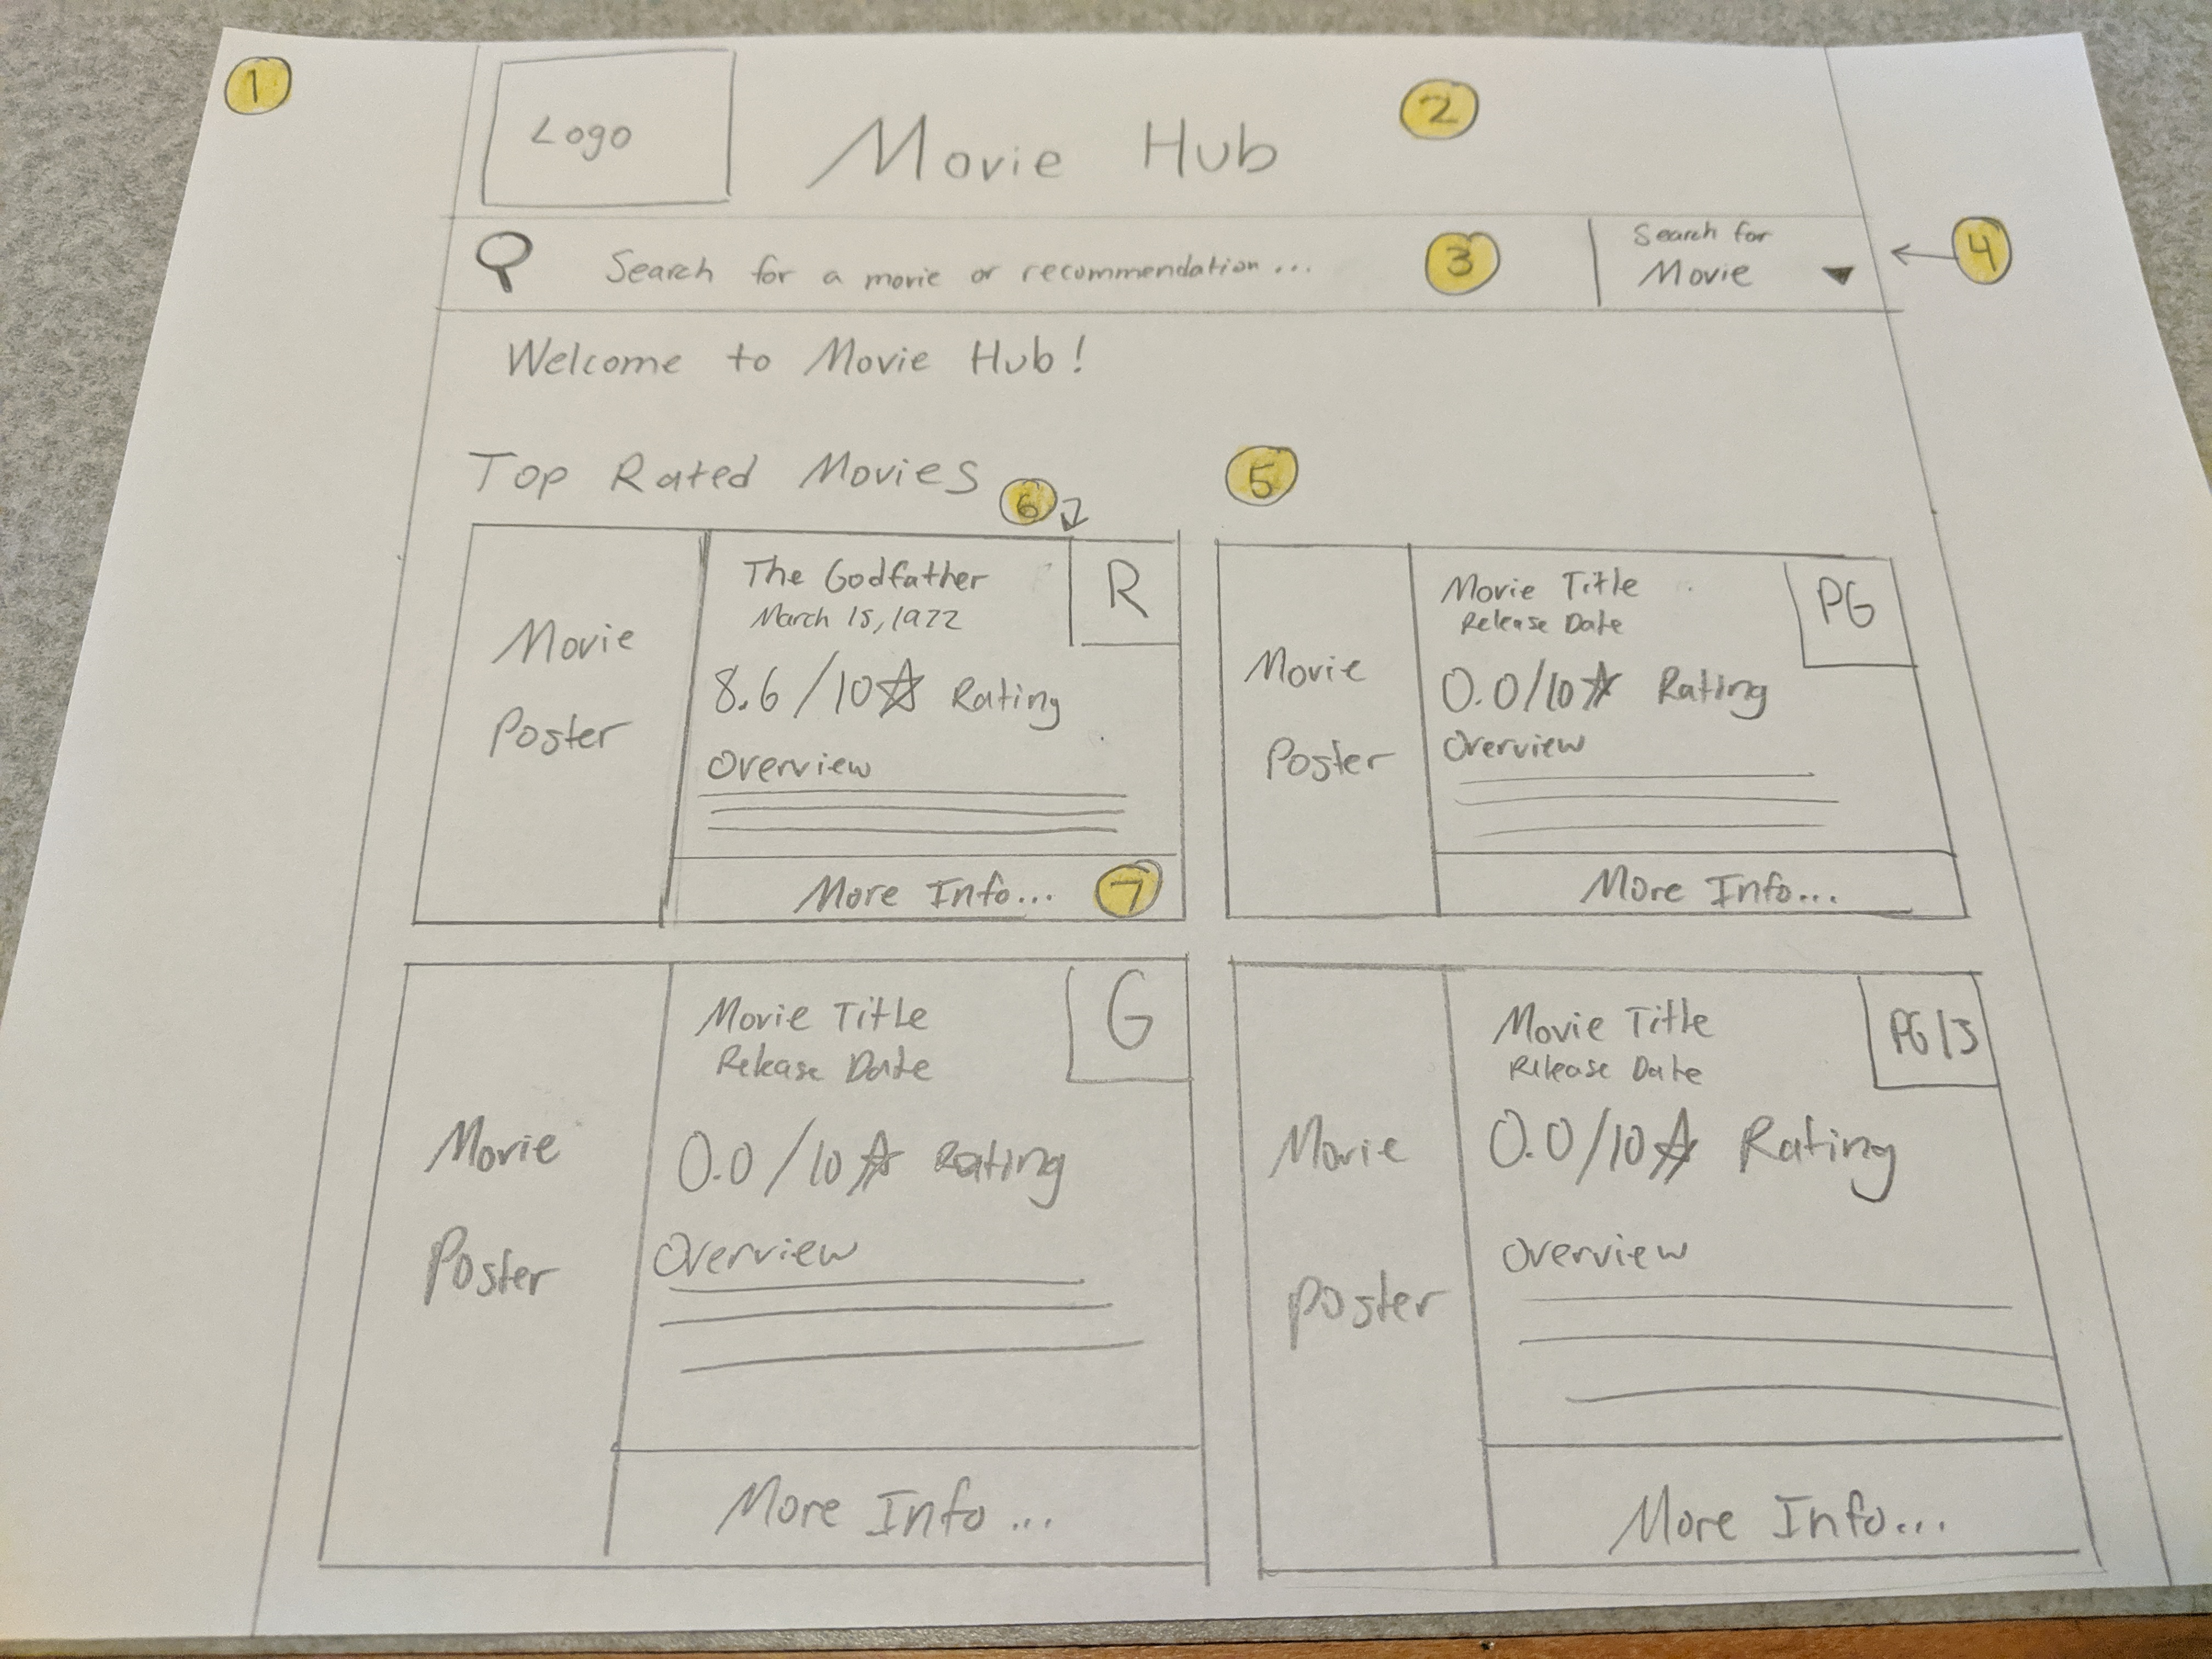 1
Logo
Movie Hub
2
Search for a movie or recommendation...
3
Search for
Movie
4
Welcome to Movie Hub!
Top Rated Movies
5
6
Movie
Poster
The Godfather
March 15, 1972
R
8.6/10☆ Rating
Overview
More Info...
7
Movie
Poster
Movie Title
Release Date
PG
0.0/10☆ Rating
Overview
More Info...
Movie
Poster
Movie Title
Release Date
G
0.0/10☆ Rating
Overview
More Info...
Movie
Poster
Movie Title
Release Date
PG13
0.0/10☆ Rating
Overview
More Info...